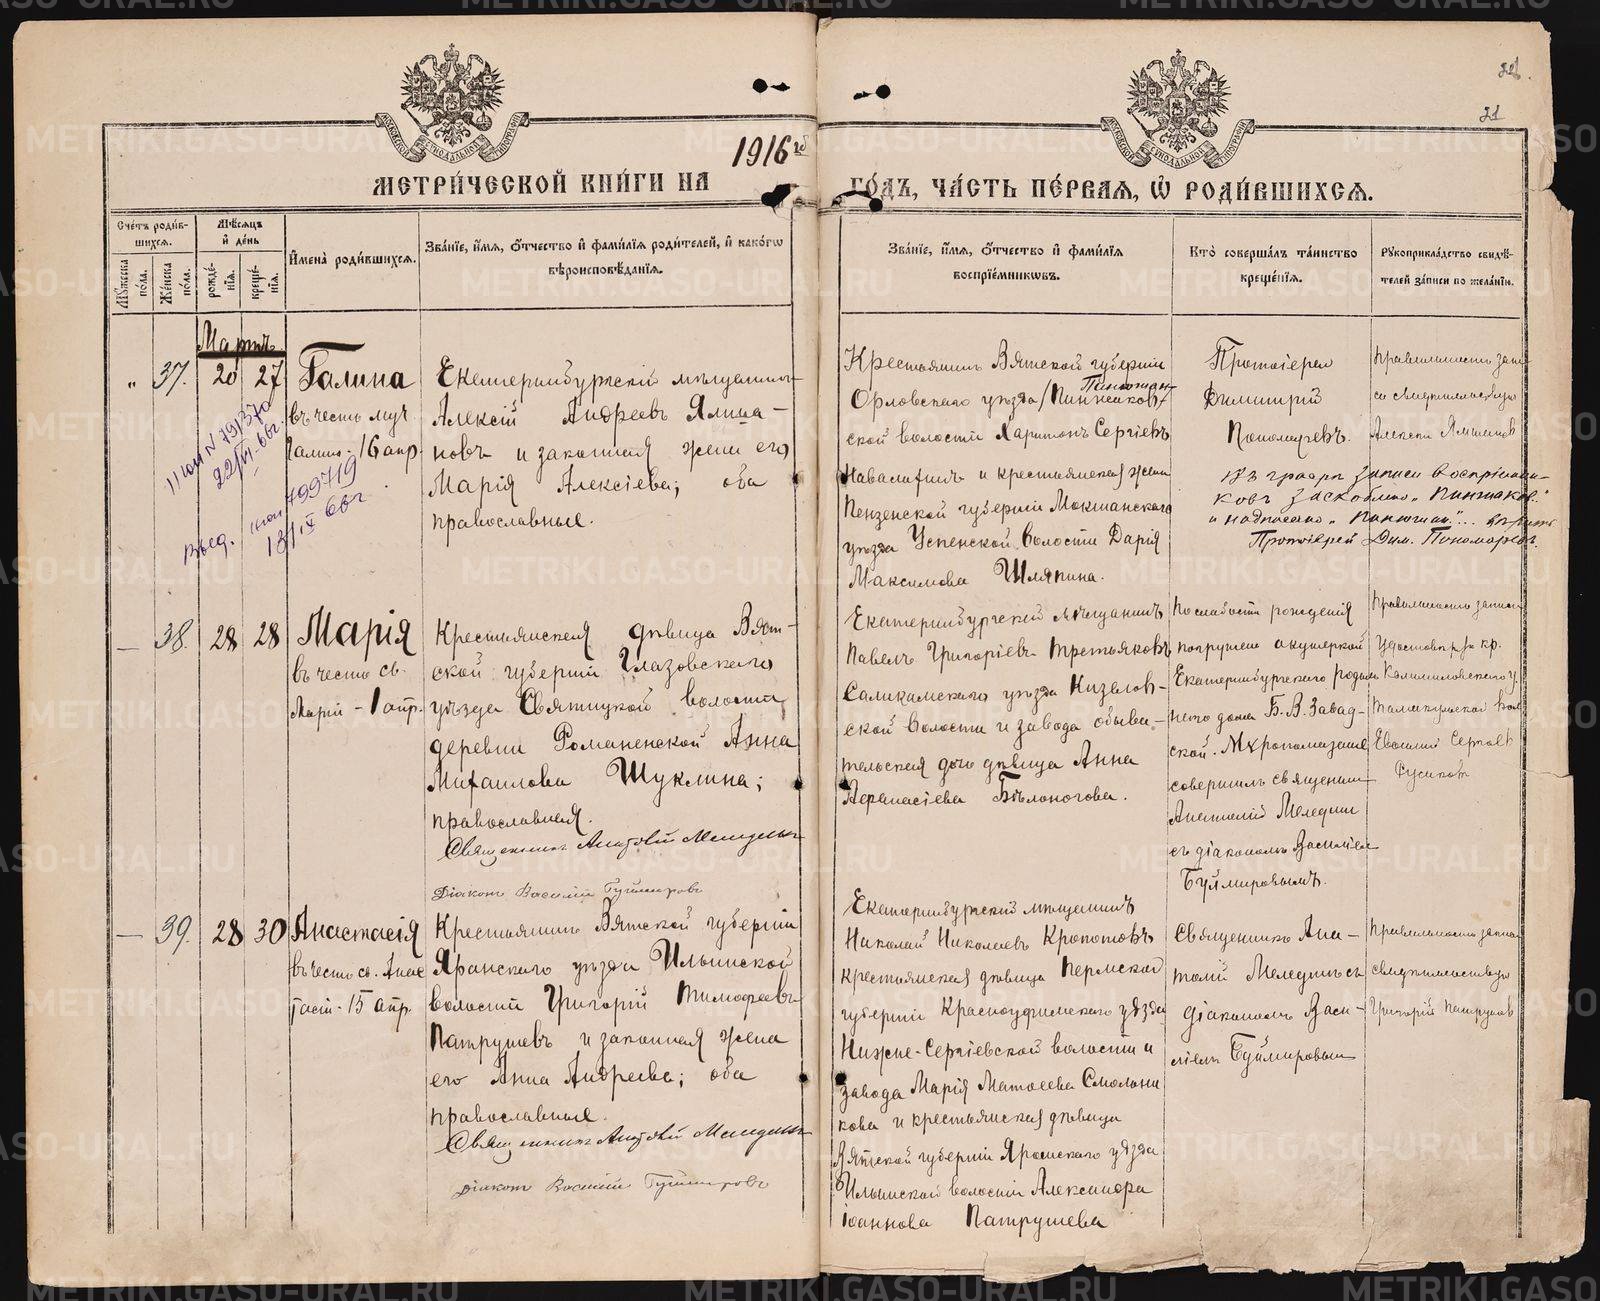 1916 го
МЕТРИЧЕСКОЙ КНИГИ НА ГОДЪ, ЧАСТЬ ПЕРВАЯ, Ѡ РОДИВШИХСЯ.
Счетъ родив-
шихся.
Мужеска пола.
Женска пола.
Мѣсяцъ
и день
рожде-
нія.
креще-
нія.
Имена родившихся.
Званіе, имя, отчество и фамилія родителей, и какогѡ
вѣроисповѣданія.
Званіе, имя, отчество и фамилія
воспріемникѡвъ.
Кто совершалъ таинство
крещенія.
Рукоприкладство свидѣ-
телей записи по желанію.
31
Мартъ
„ 37. 20 27
Галина
въ честь муч.
Галины - 16 апр.
Екатеринбургскій мѣщанинъ
Алексій Андреевъ Ялыша-
новъ и законная жена его
Марія Алексіева; оба
православные.
Крестьянинъ Вятской губерніи
Пинюжан-
Орловскаго уѣзда
ской волости Харитонъ Сергіевъ
Навалихинъ и крестьянская жена
Пензенской губерніи Мокшанскаго
уѣзда Успенской волости Дарія
Максимова Шляпина.
Протоіерей
Димитрій
Пономаревъ.
Правильность запи-
си свидѣтельствую
Въ графѣ записи воспріемни-
ковъ
и надписано
Протоіерей Дим. Пономаревъ.
22/VI-66г.
Выд.
13/IX 66г
— 38. 28 28
Марія
въ честь св.
Маріи - 1 апр.
Крестьянская дѣвица Вят-
ской губерніи Глазовскаго
уѣзда Святицкой волости,
деревни Романенской Анна
Михаилова Шуклина;
православная.
Священникъ Анатолій Меледин
Діаконъ Василій Буймировъ
Екатеринбургскій мѣщанинъ
Павелъ Григоріевъ Третьяковъ
Соликамскаго уѣзда Кизелов-
ской волости и завода обыва-
тельская дочь дѣвица Анна
Аѳанасіева Бѣлоногова.
По слабости рожденія
погружено акушеркой
Екатеринбургскаго родиль
наго дома Б. В. Завад-
ской. Мѵропомазаніе
совершилъ священникъ
Анатолій Меледин
съ діакономъ Василіемъ
Буймировымъ.
Правильность записи
— 39. 28 30
Анастасія
въ честь св. Анас-
тасіи - 15 апр.
Крестьянинъ Вятской губерніи
Яранскаго уѣзда Ильинской
волости Григорій Тимофеевъ
Патрушевъ и законная жена
его Анна Андреева; оба
православные.
Священникъ Анатолій Меледин
Діаконъ Василій Буймировъ
Екатеринбургскій мѣщанинъ
Николай Николаевъ Кропотовъ
крестьянская дѣвица Пермской
губерніи Красноуфимскаго уѣзда
Нижне-Сергіевской волости и
завода Марія Матѳеева Смольни
кова и крестьянская дѣвица
Вятской губерніи Яранскаго уѣзда
Ильинской волости Александра
Іоаннова Патрушева
Священникъ Ана-
толій Меледин съ
діакономъ Васи-
ліемъ Буймировым
Правильность записи
свидѣтельствую
Григорій Патрушев
METRIKI.GASO-URAL.RU